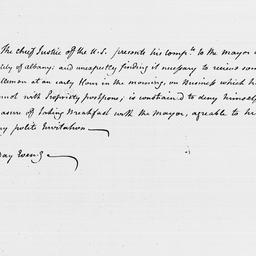 The chief Justice of the U.S. presents his compts. to the Mayor
City of albany; and unexpectly finding it necessary to recieve some
tlemen at an early Hour in the morning, on Business which he
not with Propriety postpone; is constrained to deny himself
easure of taking Breakfast with the Mayor, agreable to hi
polite Invitation—
day Eveng